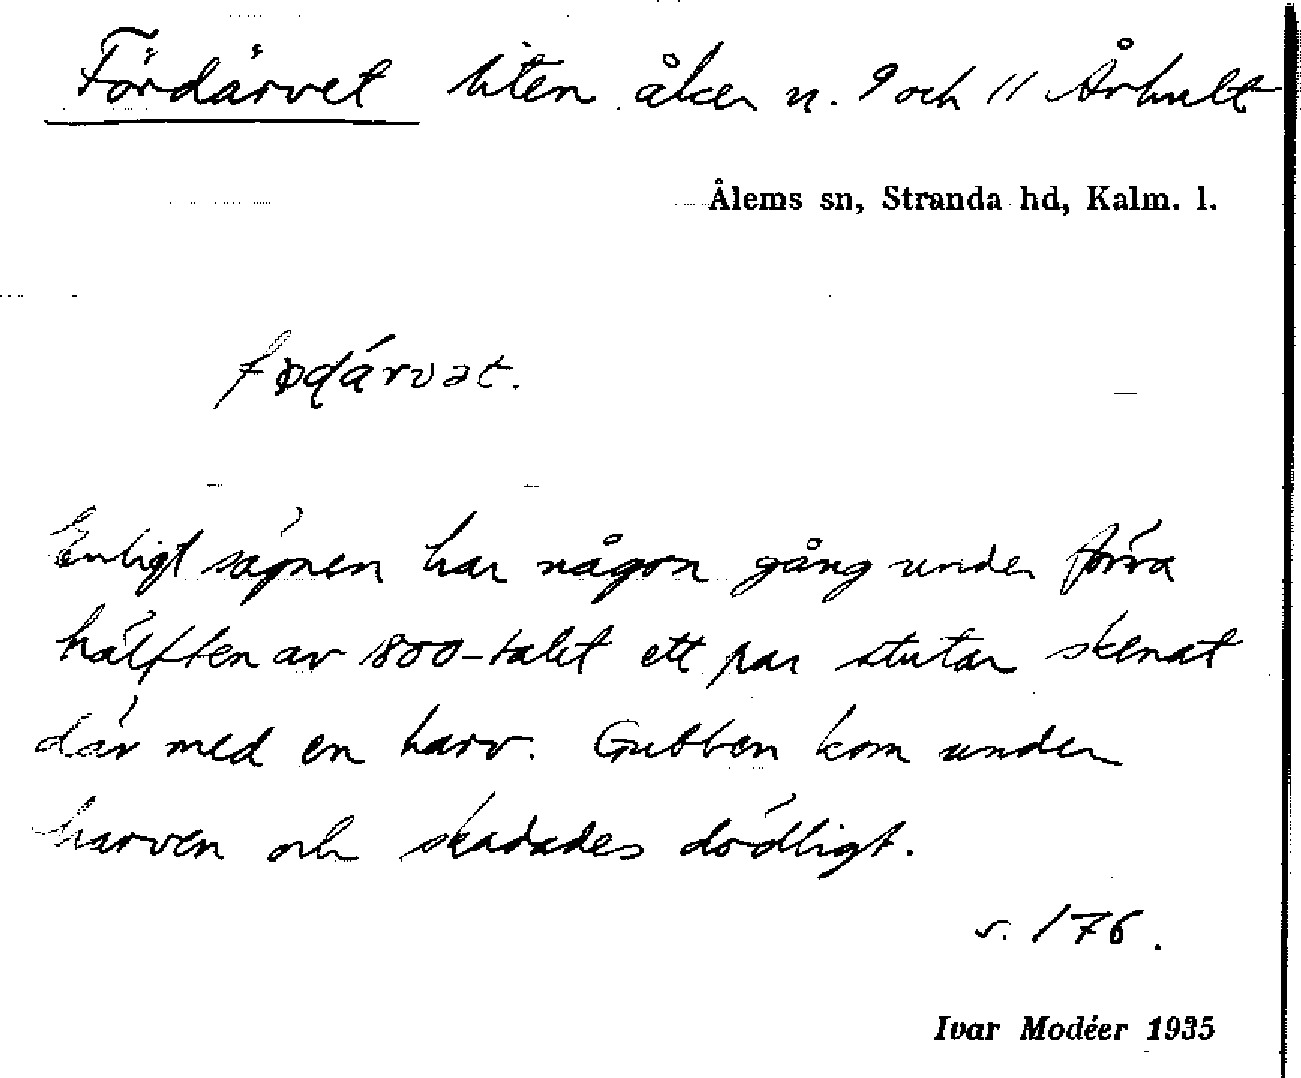 Fördärvet liten åker n. 9 och 11 Århult
Ålems sn, Stranda hd, Kalm. l.
Enligt sägnen har någon gång under förra
hälften av 1800-talet ett par stutar skenat
där med en harv. Gubben kom under
harven och skadades dödligt.
s. 176.
Ivar Modéer 1935